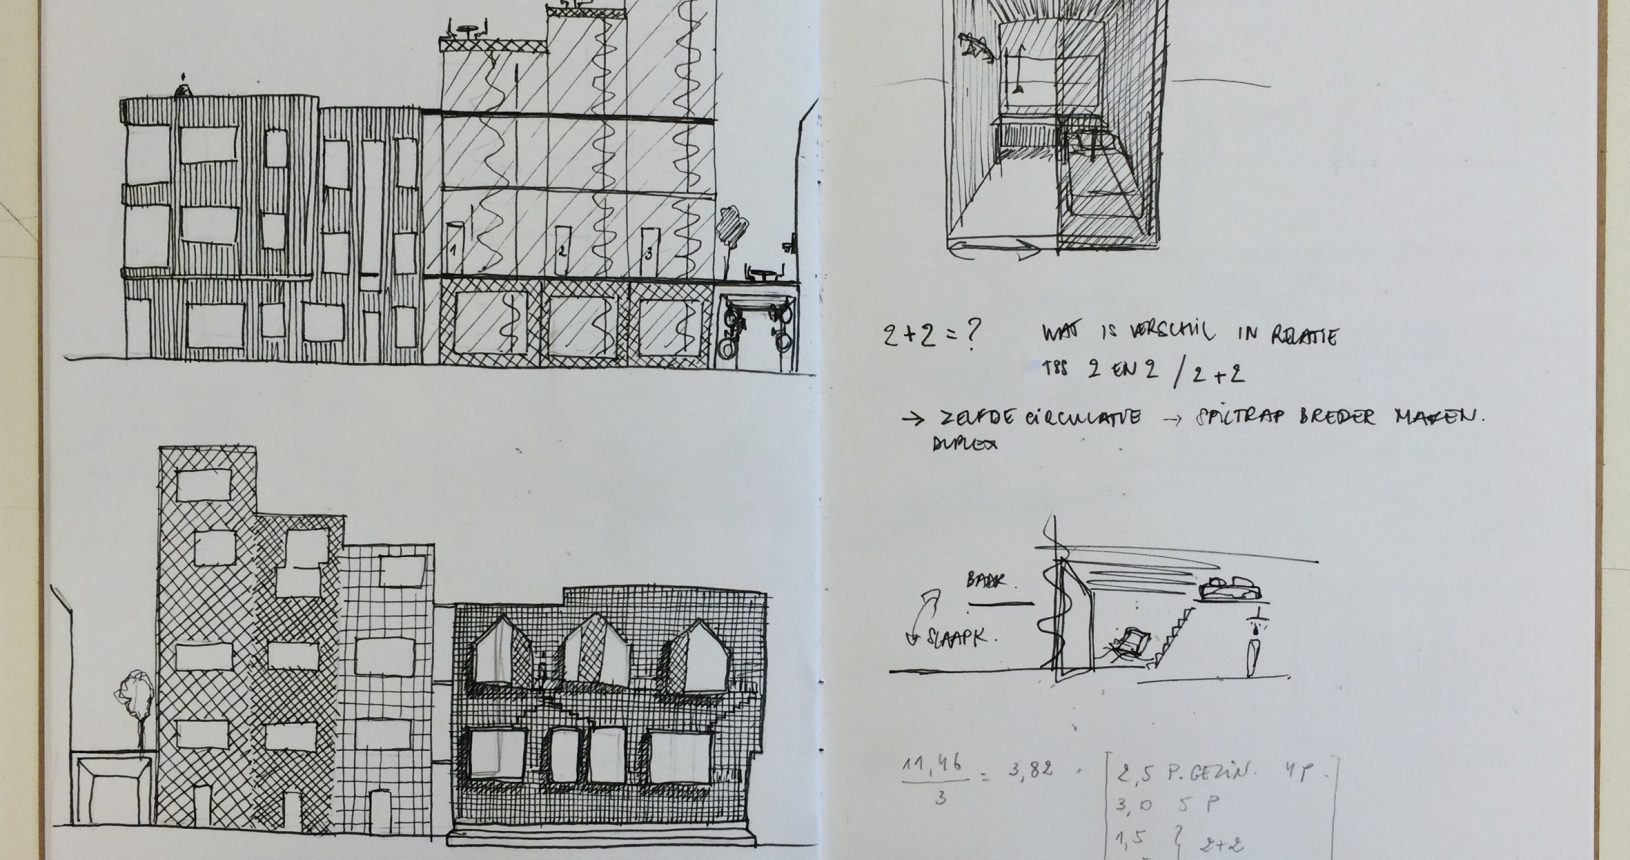 1 2 3
2+2=? WAT IS VERSCHIL IN RELATIE
TSS 2 EN 2 / 2+2
→ ZELFDE CIRCULATIE → SPILTRAP BREDER MAKEN.
DUPLEX
BADK.
SLAAPK.
11,46
3
= 3,82 .
2,5 P. GEZIN. 4P.
3,0 5 P
1,5 } 2+2